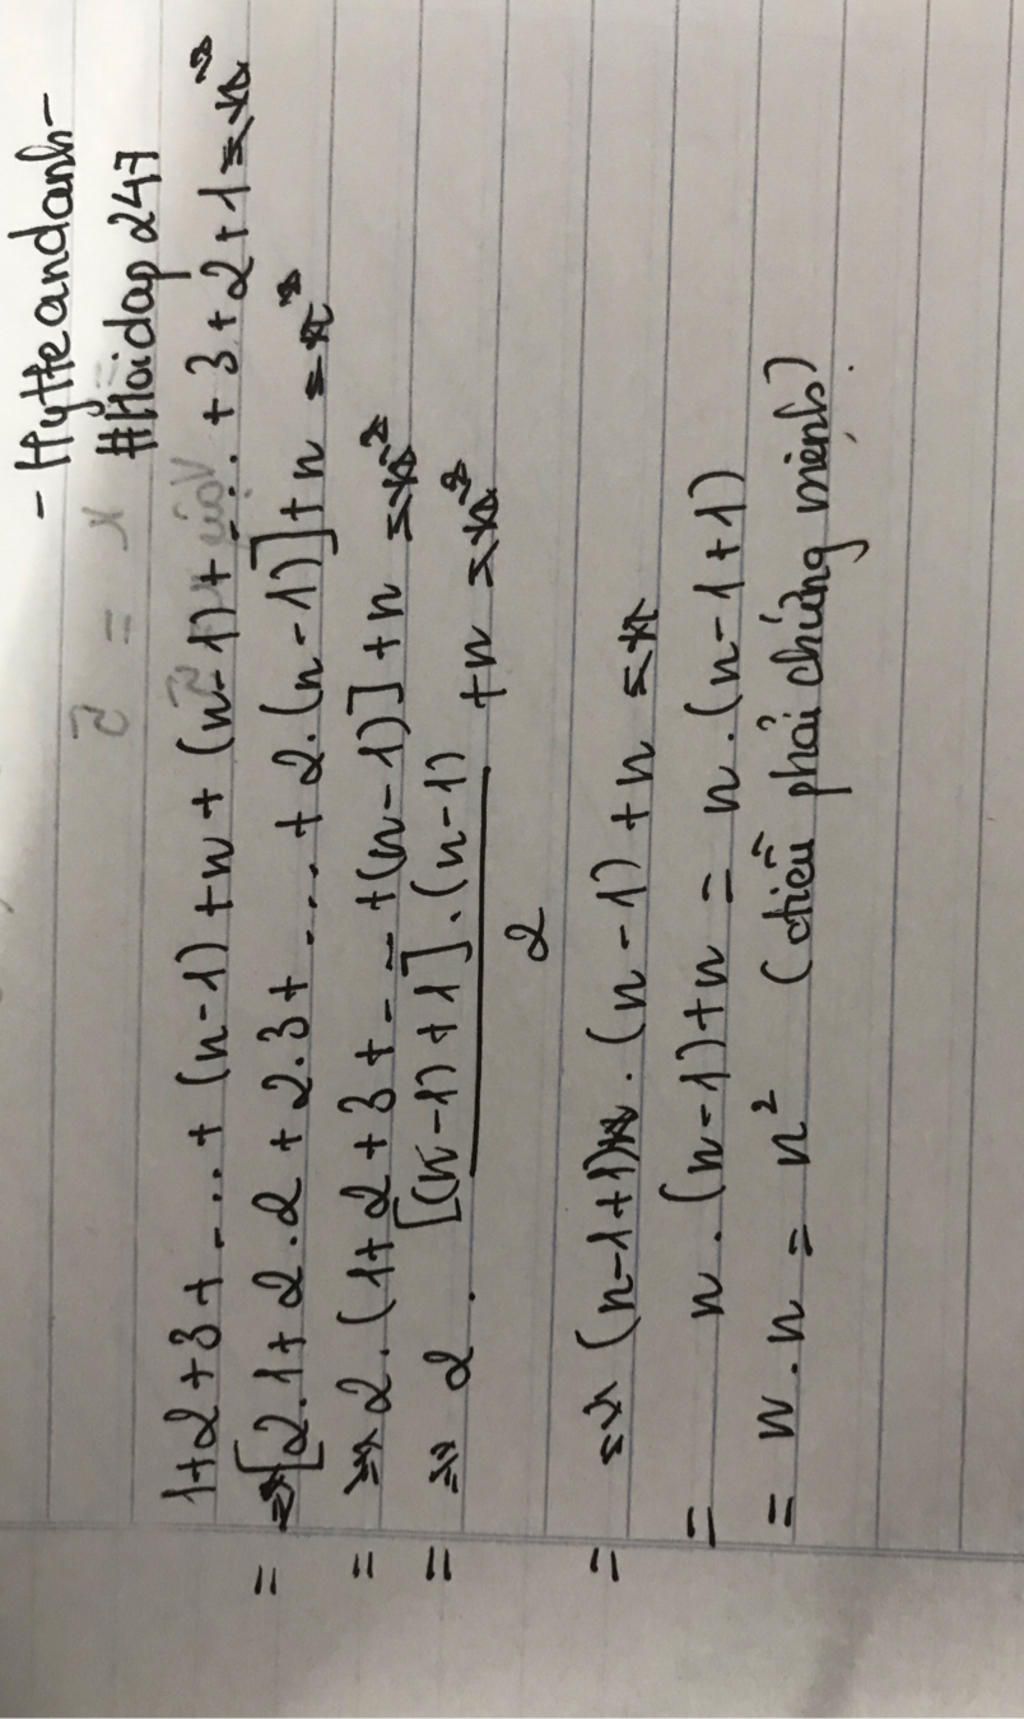 - Hytteandanh -
#Hoidap247
1+2+3+...+(n-1)+n+(n-1)+...+3+2+1
= [2.1+2.2+2.3+...+2.(n-1)]+n
= 2.(1+2+3+...+(n-1)]+n
= 2. [(n-1)+1].(n-1) +n
2
= (n-1+1).(n-1)+n
= n.(n-1)+n = n.(n-1+1)
= n.n = n² (điều phải chứng mênh)